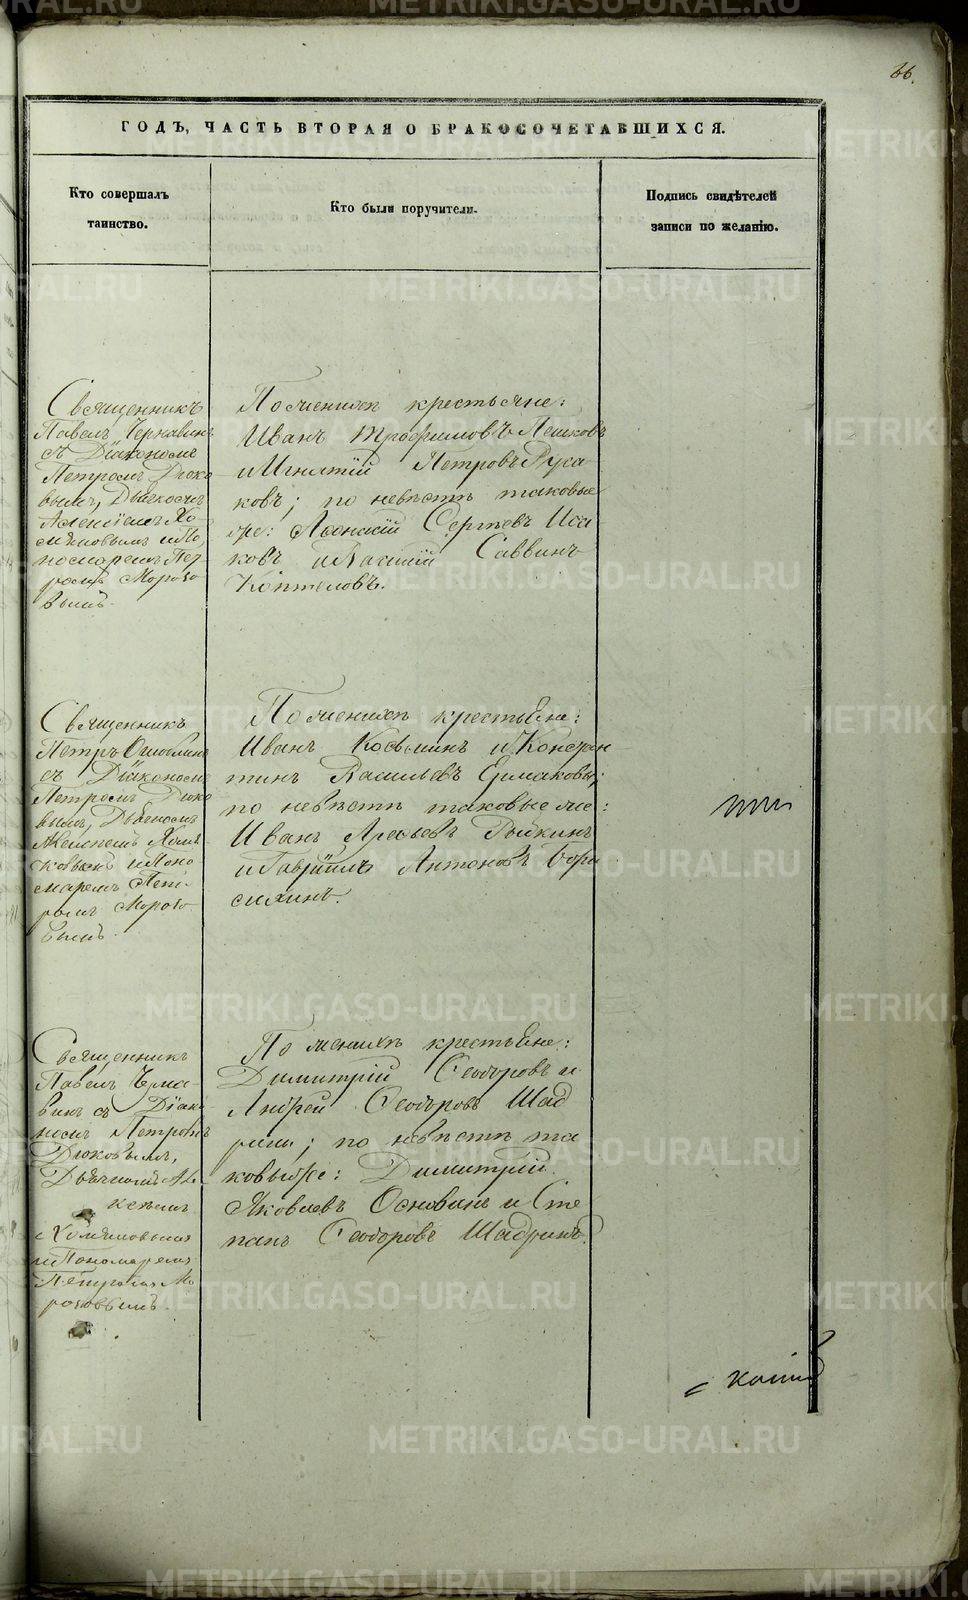 66.
ГОДЪ, ЧАСТЬ ВТОРАЯ О БРАКОСОЧЕТАВШИХСЯ.
Кто совершалъ
таинство.
Кто были поручители.
Подпись свидѣтелей
записи по желанію.
Священникъ
Павелъ Чернавинъ
съ Діакономъ
Петромъ Дюко
вымъ, Дьячкомъ
Алексіемъ Хо
мяковымъ и По
номаремъ Пет
ромъ Морозо
вымъ.
По женихѣ крестьяне:
Иванъ Трофимовъ Пешковъ
и Игнатій Петровъ Руса
ковъ; по невѣстѣ таковые
же: Сергѣевъ Иса
ковъ и Василій Саввинъ
Коптеловъ.
Священникъ
Петръ
съ Діакономъ
Петромъ Дюко
вымъ, Дьячкомъ
Алексіемъ Хомя
ковымъ и Поно
маремъ Пет
ромъ Морозо
вымъ.
По женихѣ крестьяне:
Иванъ Козьминъ и Констан
тинъ Васильевъ Ермаковы;
по невѣстѣ таковые же:
Иванъ
и Гавріилъ Антоновъ Гера
симинъ.
Священникъ
Павелъ Черна
винъ съ Діако
номъ Петромъ
Дюковымъ,
Дьячкомъ Але
ксѣемъ
Хомяковымъ
и Пономаремъ
Петромъ Мо
розовымъ.
По женихѣ крестьяне:
Димитрій Ѳеодоровъ и
Андрей Ѳеодоровъ Шад
рины; по невѣстѣ та
ковы же: Димитрій
Яковлевъ Основинъ и Сте
панъ Ѳеодоровъ Шадринъ.
METRIKI.GASO-URAL.RU